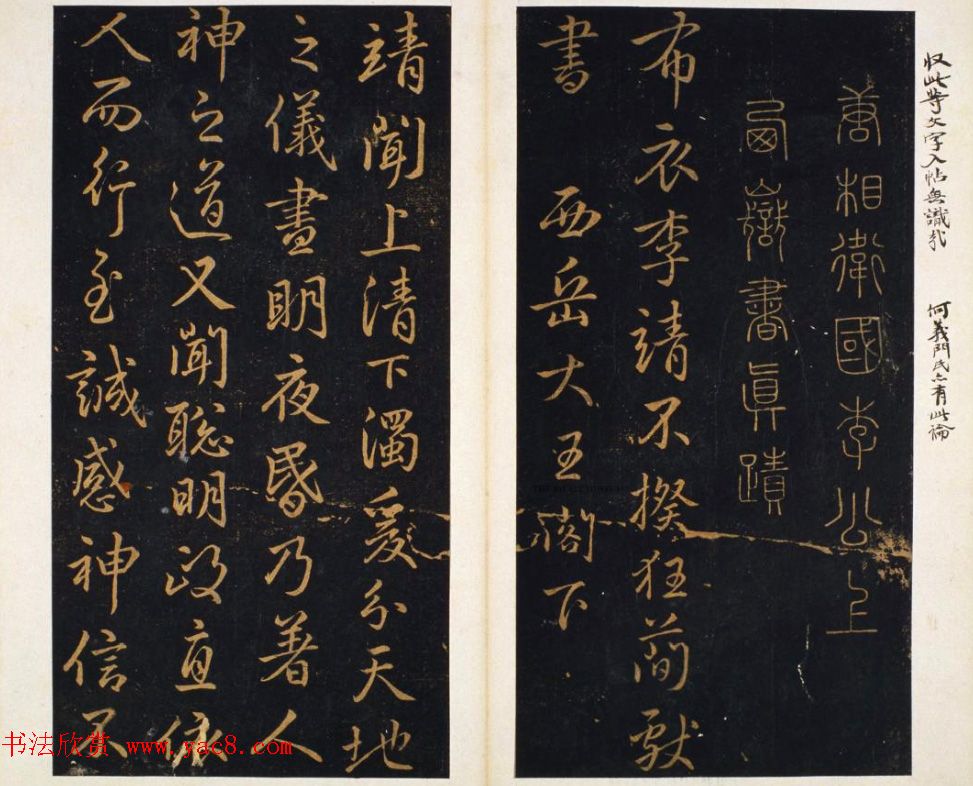 收此等文字入帖無識哉
何義門氏亦有此論
唐相衛國李公上
西嶽書眞蹟
布衣李靖不揆狂簡獻
書 西岳大王閣下
靖聞上清下濁爰分天地
之儀晝明夜昏乃著人
神之道又聞聰明正直依
人而行至誠感神信不
书法欣赏 www.yac8.com